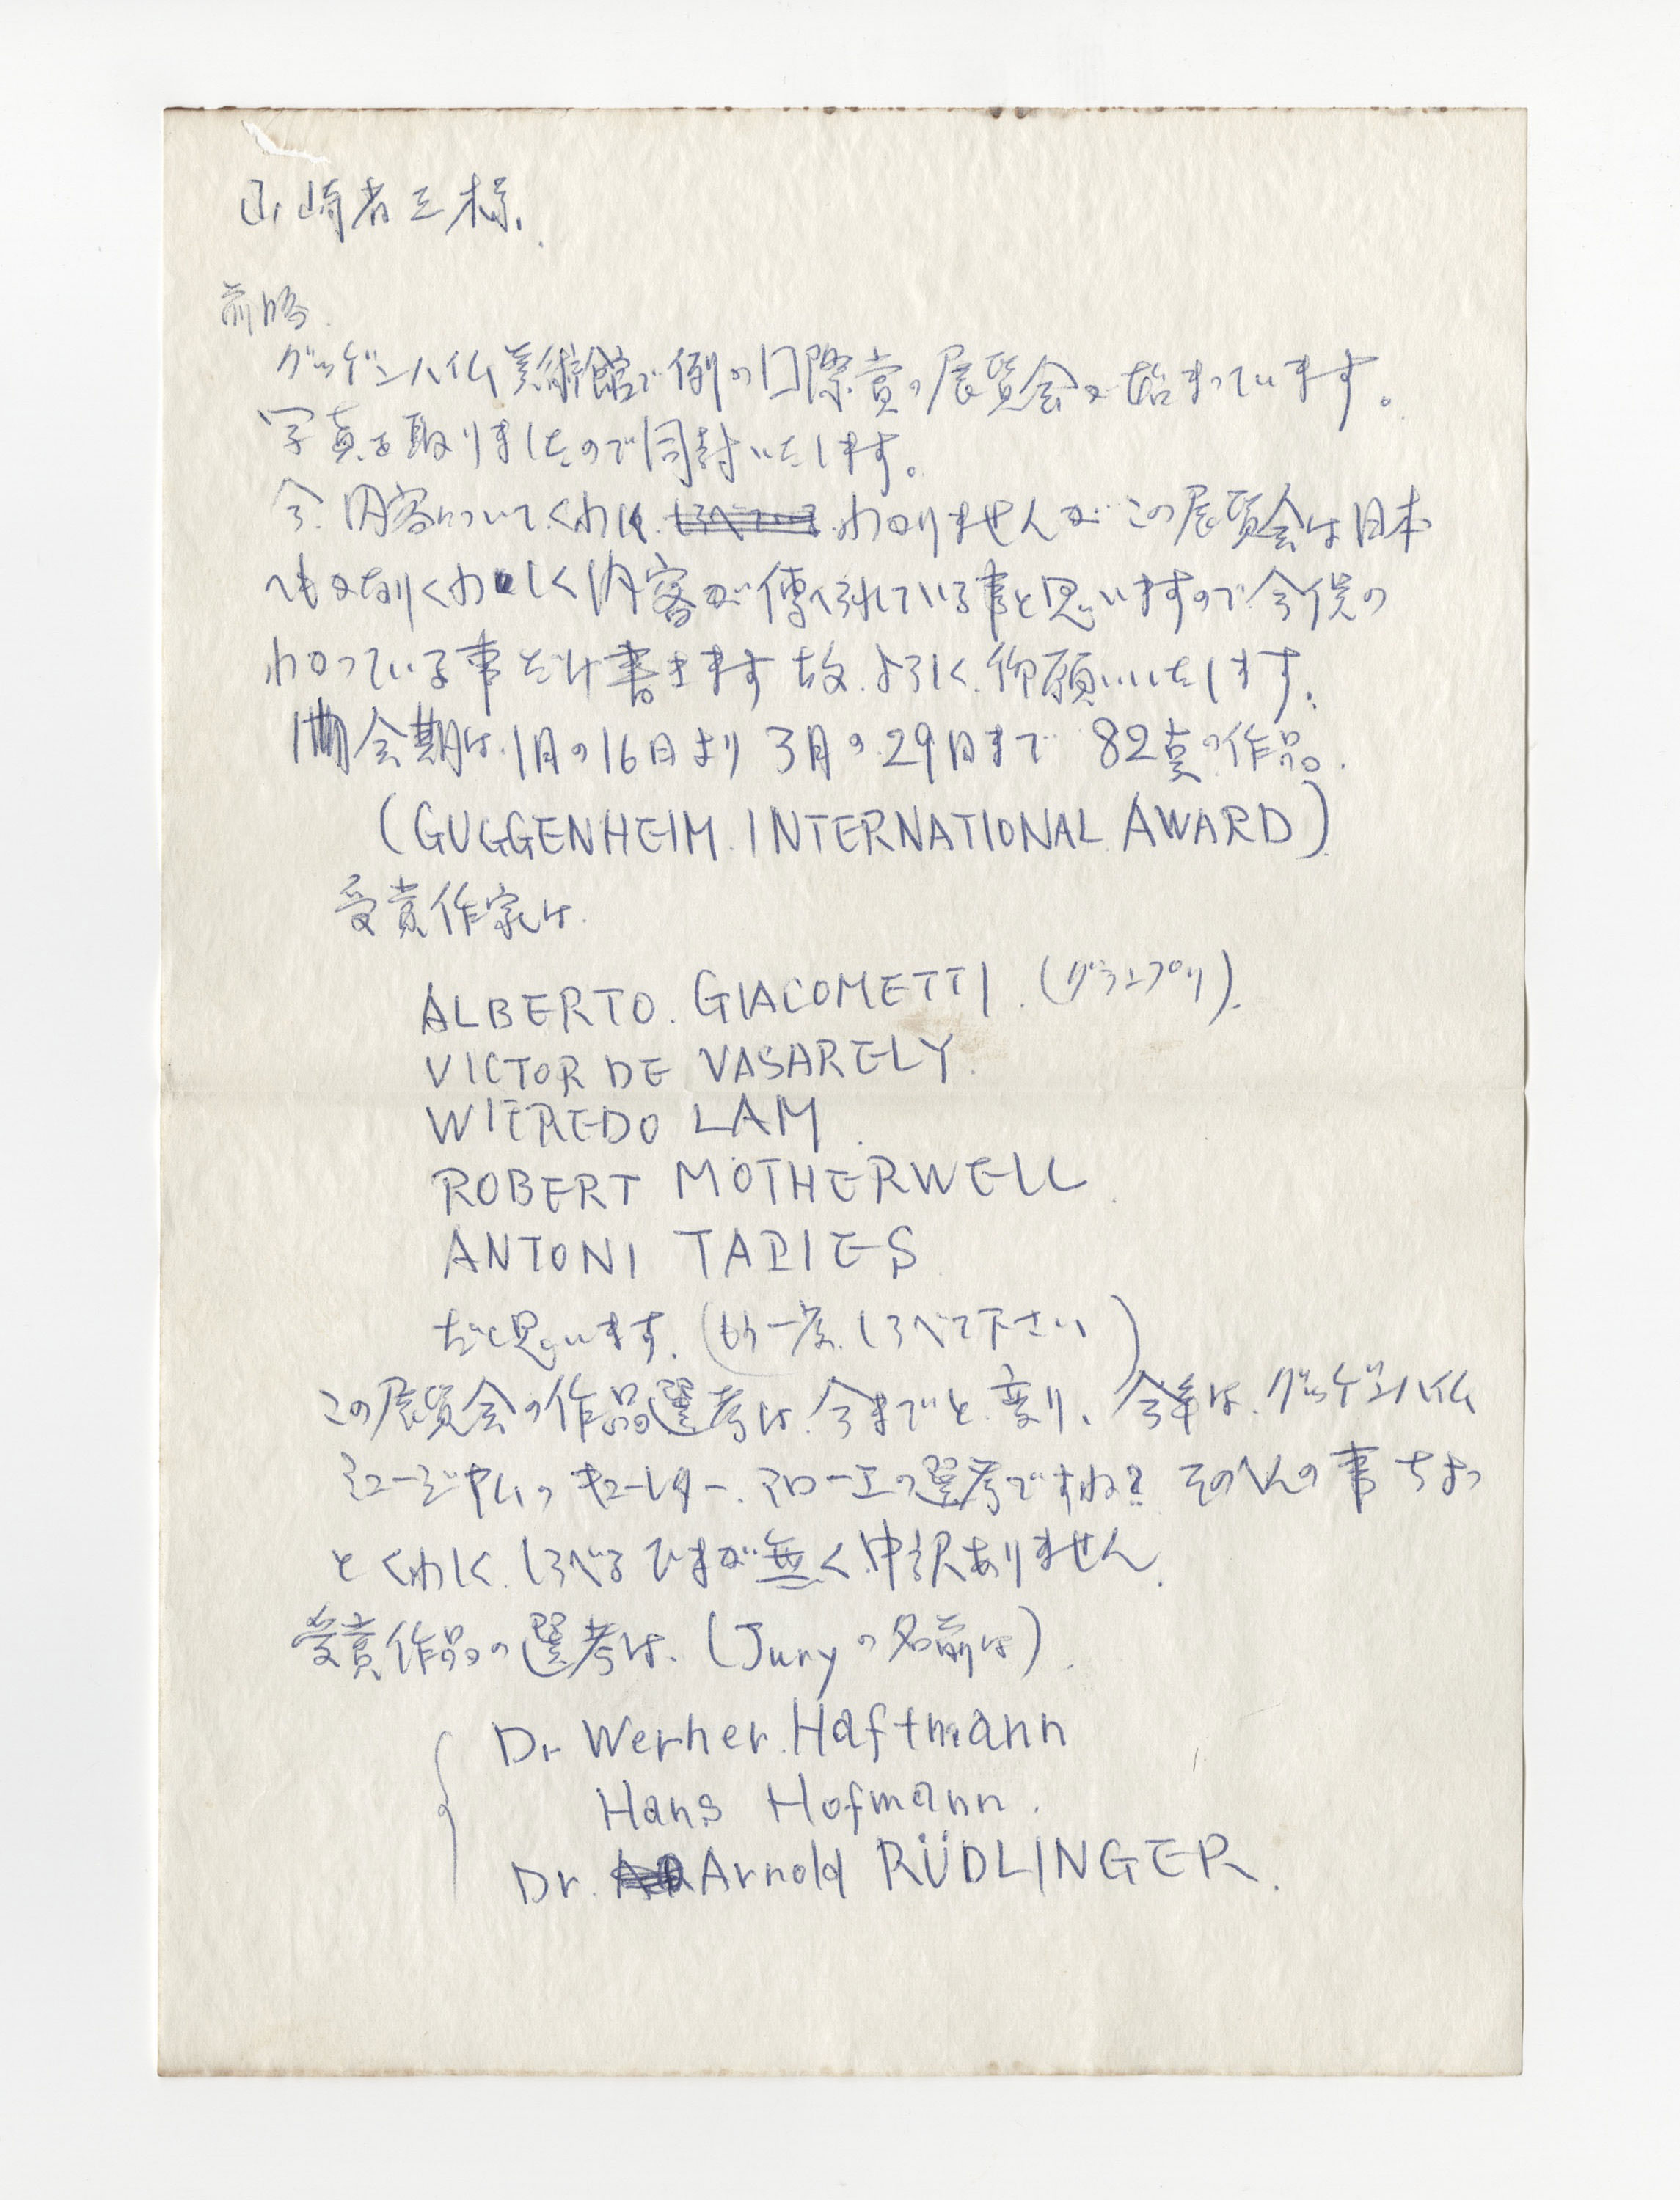 山崎省三様.
前略.
グッゲンハイム美術館で例の国際賞の展覧会が始まっています。
写真を取りましたので同封いたします。
今.内容についてくわしく わかりませんがこの展覧会は日本
へもかなりくわしく内容が傳へられている事と思いますので今僕の
わかっている事だけ書きます故.よろしく.御願いいたします.
会期は.1月の16日より3月の29日まで 82点の作品.
(GUGGENHEIM.INTERNATIONAL.AWARD)
受賞作家は.
ALBERTO. GIACOMETTI.(グランプリ).
VICTOR DE VASARELY.
WIFREDO LAM.
ROBERT MOTHERWELL.
ANTONI TAPIES
だと思います.(もう一度.しらべて下さい)
この展覧会の作品選考は.今までと変り、今年は.グッゲンハイム
ミュージヤムのキューレター.アローエの選考ですね?そのへんの事ちょっ
とくわしく.しらべるひまが無く.申訳ありません.
受賞作品の選考は.(Juryの名前は).
Dr Werner.Haftmann
Hans Hofmann.
Dr. Arnold RÜDLINGER.